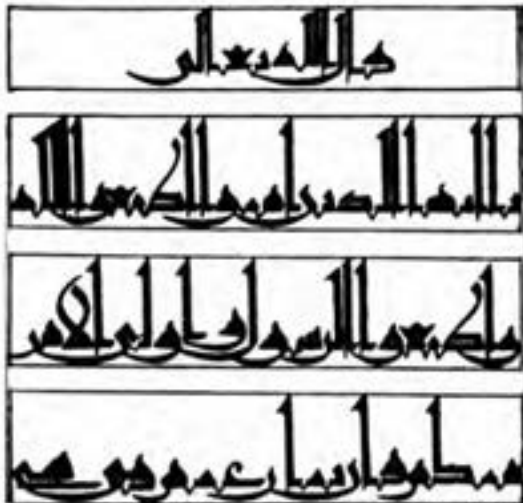 قال الله تعالى
يا ايها الذين امنوا اطيعوا الله
واطيعوا الرسول واولى الامر
منكم فان تنازعتم فى شى